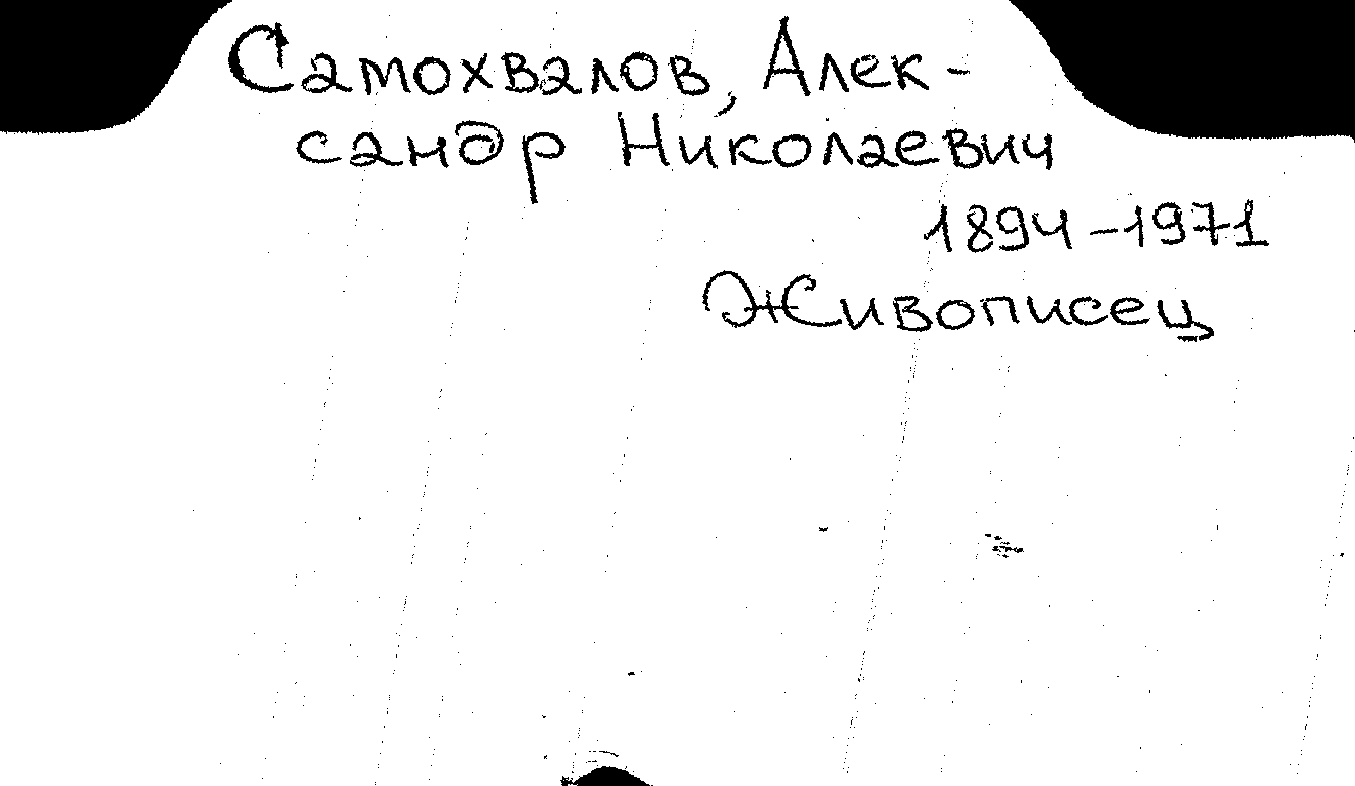 Самохвалов, Алек-
сандр Николаевич
1894-1971
Живописец